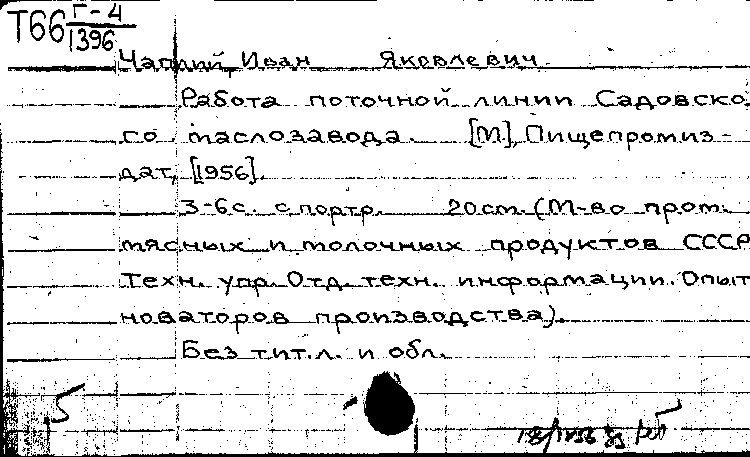 Т66 Г-4
1396
Чаплий, Иван Яковлевич
Работа поточной линии Садовско
го маслозавода. [М], Пищепромиз-
дат, [1956].
3-6с. с портр. 20см. (М-во пром.
мясных и молочных продуктов СССР
Техн. упр. Отд. техн. информации. Опыт
новаторов производства).
Без тит.л. и обл.
5